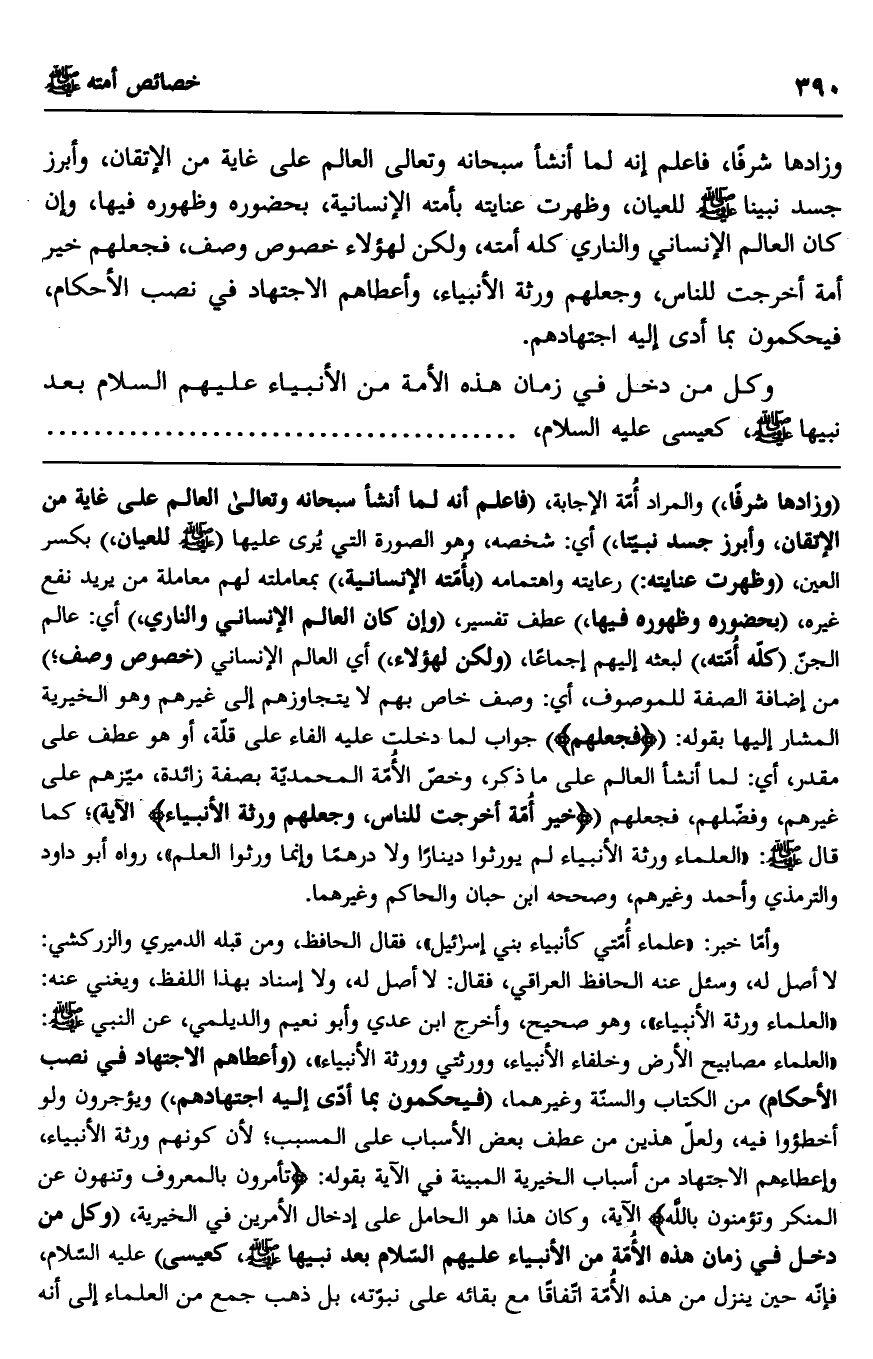 ٣٩٠ خصائص أمته ﷺ
وزادها شرفًا، فاعلم إنه لما أنشأ سبحانه وتعالى العالم على غاية من الإتقان، وأبرز
جسد نبينا ﷺ للعيان، وظهرت عنايته بأمته الإنسانية، بحضوره وظهوره فيها، وإن
كان العالم الإنساني والناري كله أمته، ولكن لهؤلاء خصوص وصف، فجعلهم خير
أمة أخرجت للناس، وجعلهم ورثة الأنبياء، وأعطاهم الاجتهاد في نصب الأحكام،
فيحكمون بما أدى إليه اجتهادهم.
وكل من دخل في زمان هذه الأمة من الأنبياء عليهم السلام بعد
نبيها ﷺ، كعيسى عليه السلام، ........................................
(وزادها شرفًا،) والمراد أُمّة الإجابة، (فاعلم أنه لما أنشأ سبحانه وتعالىٰ العالم على غاية من
الإتقان، وأبرز جسد نبيّنا،) أي: شخصه، وهو الصورة التي يُرى عليها (ﷺ للعيان،) بكسر
العين، (وظهرت عنايته:) رعايته واهتمامه (بأُمّته الإنسانية،) بمعاملته لهم معاملة من يريد نفع
غيره، (بحضوره وظهوره فيها،) عطف تفسير، (وإن كان العالم الإنساني والناري،) أي: عالم
الجنّ (كلّه أُمّته،) لبعثه إليهم إجماعًا، (ولكن لهؤلاء،) أي العالم الإنساني (خصوص وصف؛)
من إضافة الصفة للموصوف، أي: وصف خاص بهم لا يتجاوزهم إلى غيرهم وهو الخيرية
المشار إليها بقوله: (﴿فجعلهم﴾) جواب لما دخلت عليه الفاء على قلّة، أو هو عطف على
مقدر، أي: لما أنشأ العالم على ما ذكر، وخصّ الأُمّة المحمديّة بصفة زائدة، ميّزهم على
غيرهم، وفضّلهم، فجعلهم (﴿خير أُمّة أخرجت للناس، وجعلهم ورثة الأنبياء﴾ الآية)؛ كما
قال ﷺ: «العلماء ورثة الأنبياء لم يورثوا دينارًا ولا درهمًا وإنما ورثوا العلم»، رواه أبو داود
والترمذي وأحمد وغيرهم، وصححه ابن حبان والحاكم وغيرهما.
وأمّا خبر: «علماء أُمّتي كأنبياء بني إسرائيل»، فقال الحافظ، ومن قبله الدميري والزركشي:
لا أصل له، وسئل عنه الحافظ العراقي، فقال: لا أصل له، ولا إسناد بهذا اللفظ، ويغني عنه:
«العلماء ورثة الأنبياء»، وهو صحيح، وأخرج ابن عدي وأبو نعيم والديلمي، عن النبي ﷺ:
«العلماء مصابيح الأرض وخلفاء الأنبياء، وورثتي وورثة الأنبياء»، (وأعطاهم الاجتهاد في نصب
الأحكام) من الكتاب والسنّة وغيرهما، (فيحكمون بما أدّى إليه اجتهادهم،) ويؤجرون ولو
أخطؤوا فيه، ولعلّ هذين من عطف بعض الأسباب على المسبب؛ لأن كونهم ورثة الأنبياء،
وإعطاءهم الاجتهاد من أسباب الخيرية المبينة في الآية بقوله: ﴿تأمرون بالمعروف وتنهون عن
المنكر وتؤمنون باللَّه﴾ الآية، وكان هذا هو الحامل على إدخال الأمرين في الخيرية، (وكل من
دخل في زمان هذه الأُمّة من الأنبياء عليهم السّلام بعد نبيها ﷺ، كعيسى) عليه السّلام،
فإنّه حين ينزل من هذه الأُمّة اتّفاقًا مع بقائه على نبوّته، بل ذهب جمع من العلماء إلى أنه